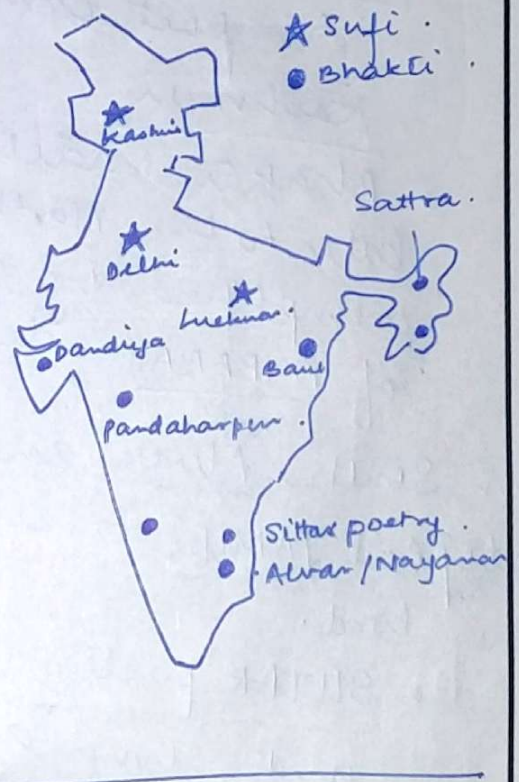 Sufi.
Bhakti.
Kashmir
Sattra.
Delhi
Lucknow.
Dandiya
Baul
Pandaharpur.
Sittar poetry.
Alvar/Nayanar